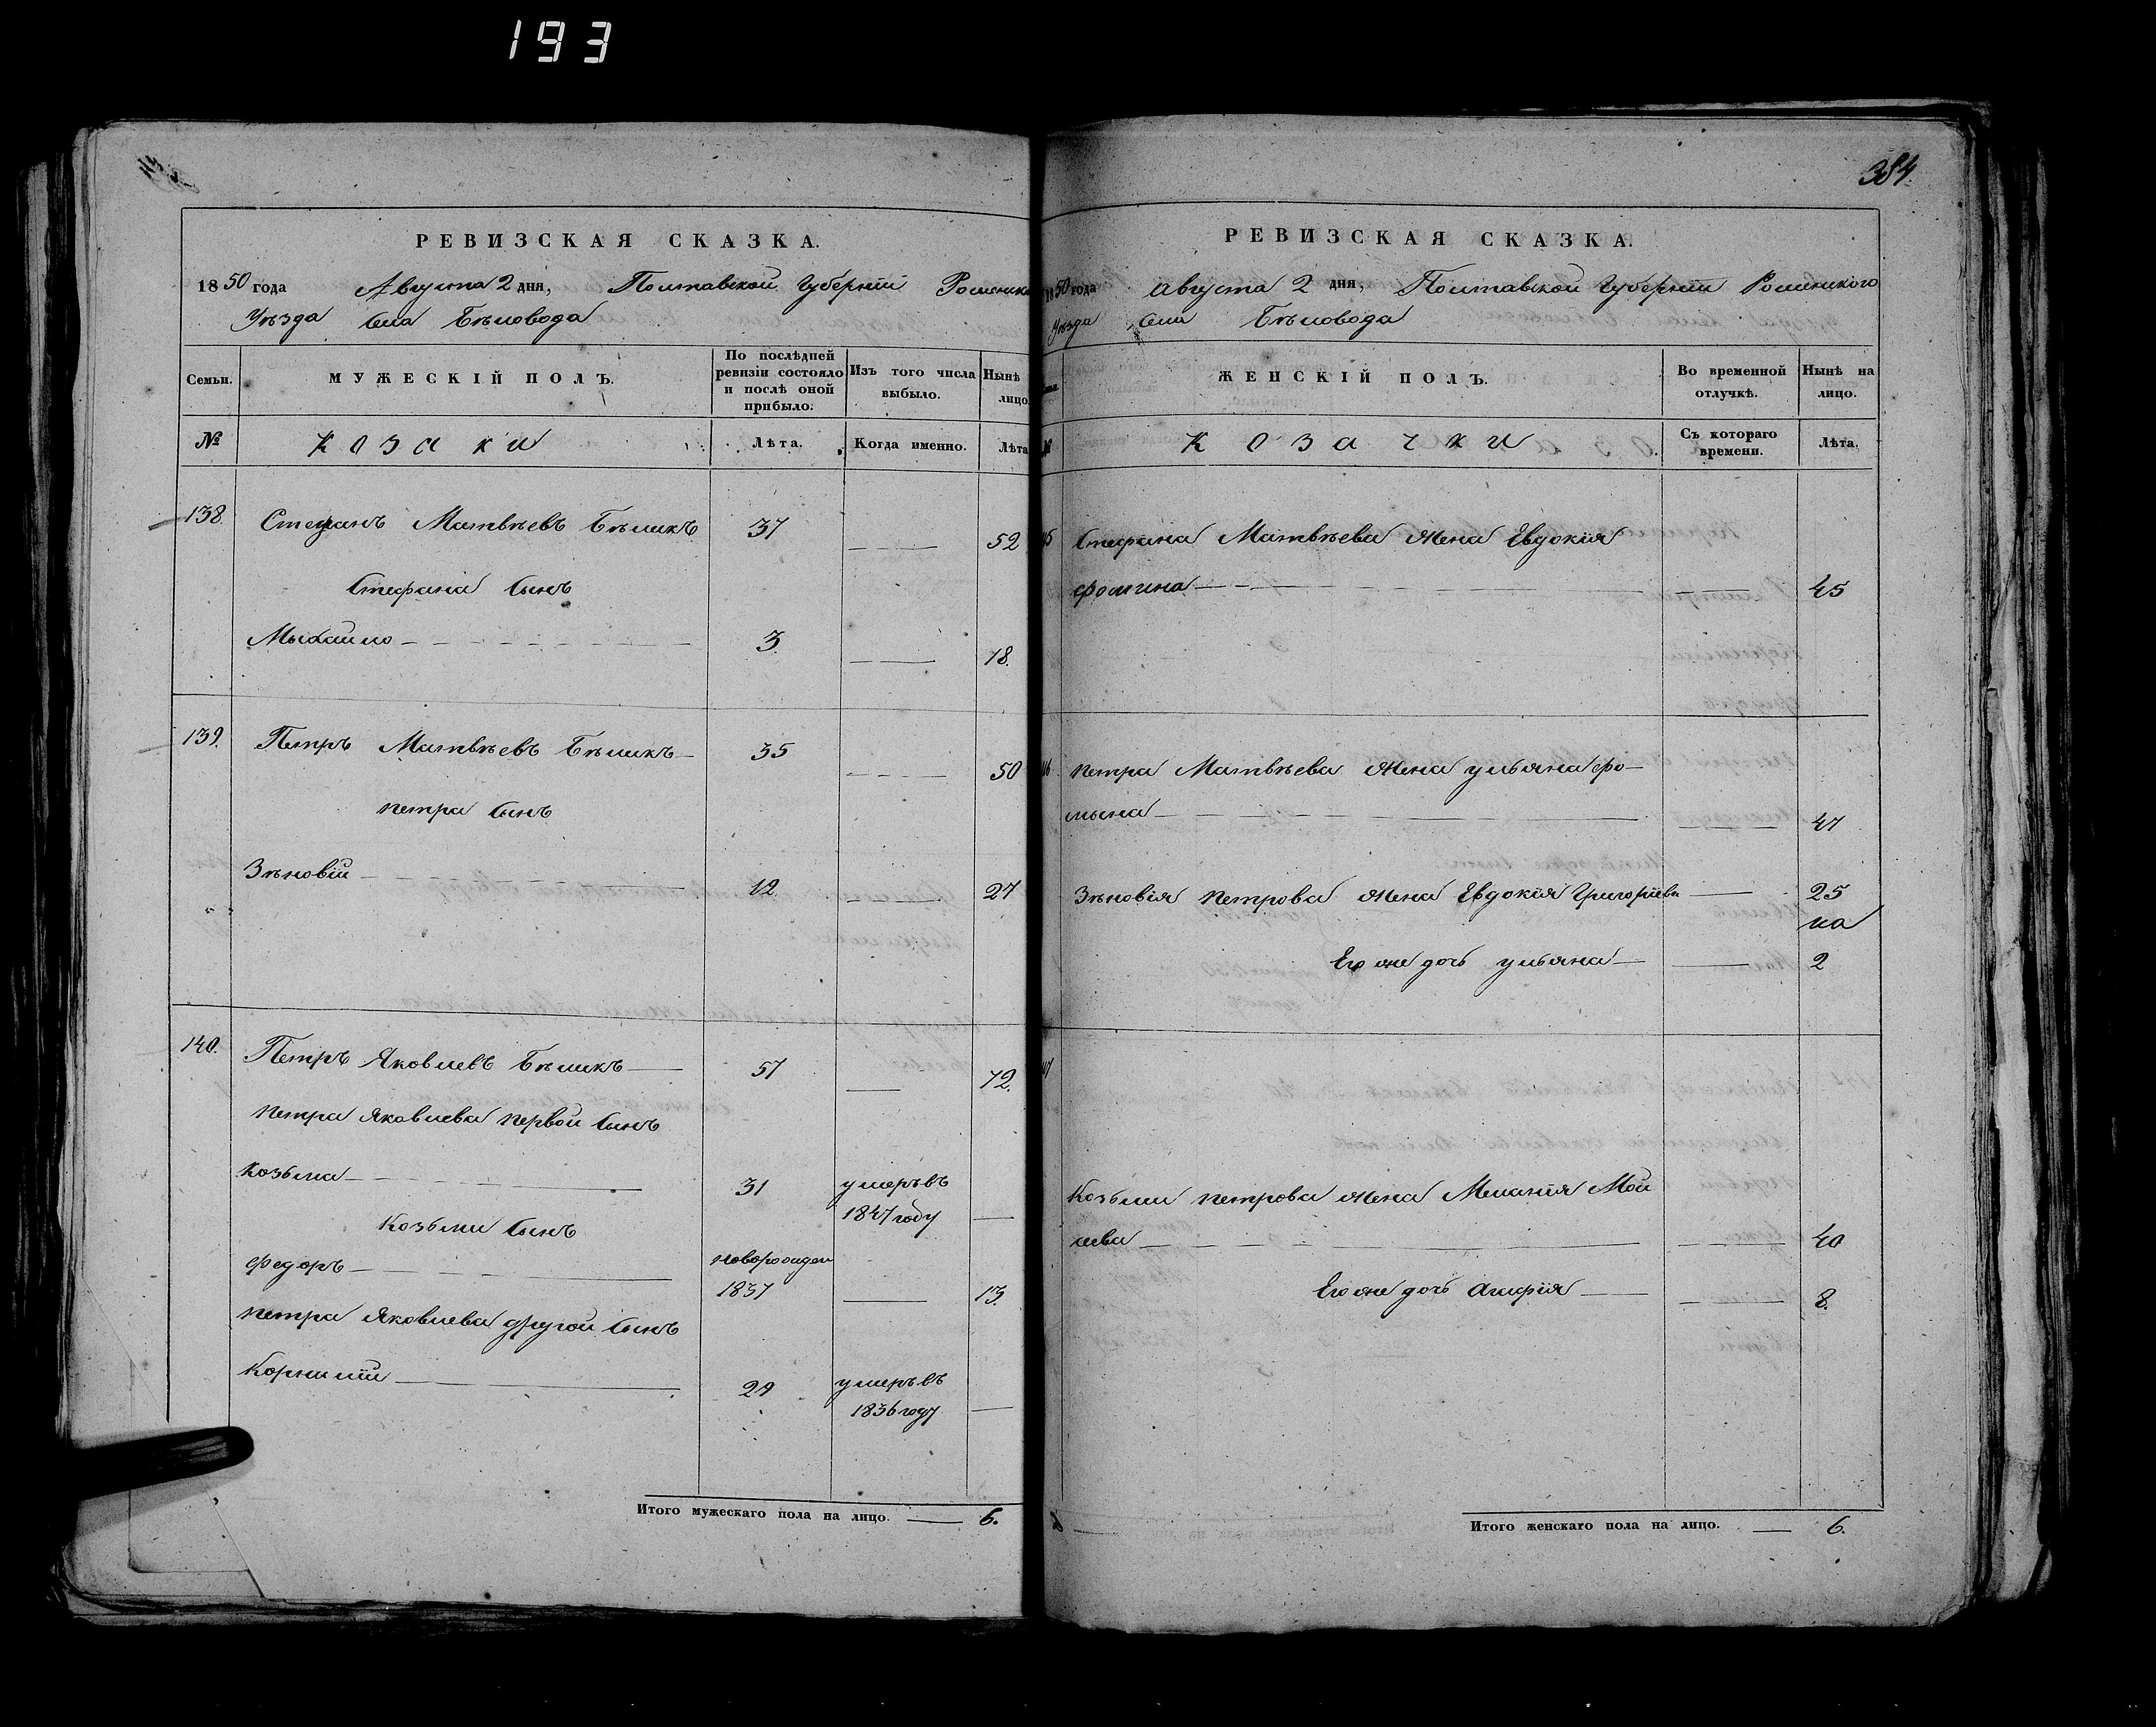 193
РЕВИЗСКАЯ СКАЗКА.
1850 года Августа 2 дня, Полтавской Губерніи Роменска
Уѣзда Села Бѣловода
Семьи. МУЖЕСКІЙ ПОЛЪ. По послѣдней ревизіи состояло и послѣ оной прибыло. Изъ того числа выбыло. Нынѣ лицо
№ Козаки Лѣта. Когда именно. Лѣта
138. Стефанъ Матвѣевъ Бѣликъ 37 52
Стефана Сынъ
Мыхайло 3. 18.
139. Петръ Матвѣевъ Бѣликъ 35 50
петра Сынъ
Зѣновій 12 27
140. Петръ Яковлевъ Бѣликъ 57 72.
петра Яковлева первой Сынъ
Козьма 31 умеръ въ
1847 году
Козьми Сынъ
Федоръ новорожден
1837 13.
петра Яковлева другой Сынъ
Корнилій 29 умеръ въ
1836 году
Итого мужескаго пола на лицо. 6.
384.
РЕВИЗСКАЯ СКАЗКА.
1850 года Августа 2 дня, Полтавской Губерніи Роменского
Уѣзда Села Бѣловода
ЖЕНСКІЙ ПОЛЪ. Во временной отлучкѣ. Нынѣ на лицо.
Козачки Съ котораго времени. Лѣта.
Стефана Матвѣева Жена Евдокія
Фомина 45
петра Матвѣева Жена ульяна фо-
мына 47
Зѣновія петрова Жена Евдокія Григоріева 25
на
Его же дочь ульяна 2
Козьми петрова жена Меланія Мой
сева 40
Его же дочь Агафія 8.
Итого женскаго пола на лицо. 6.